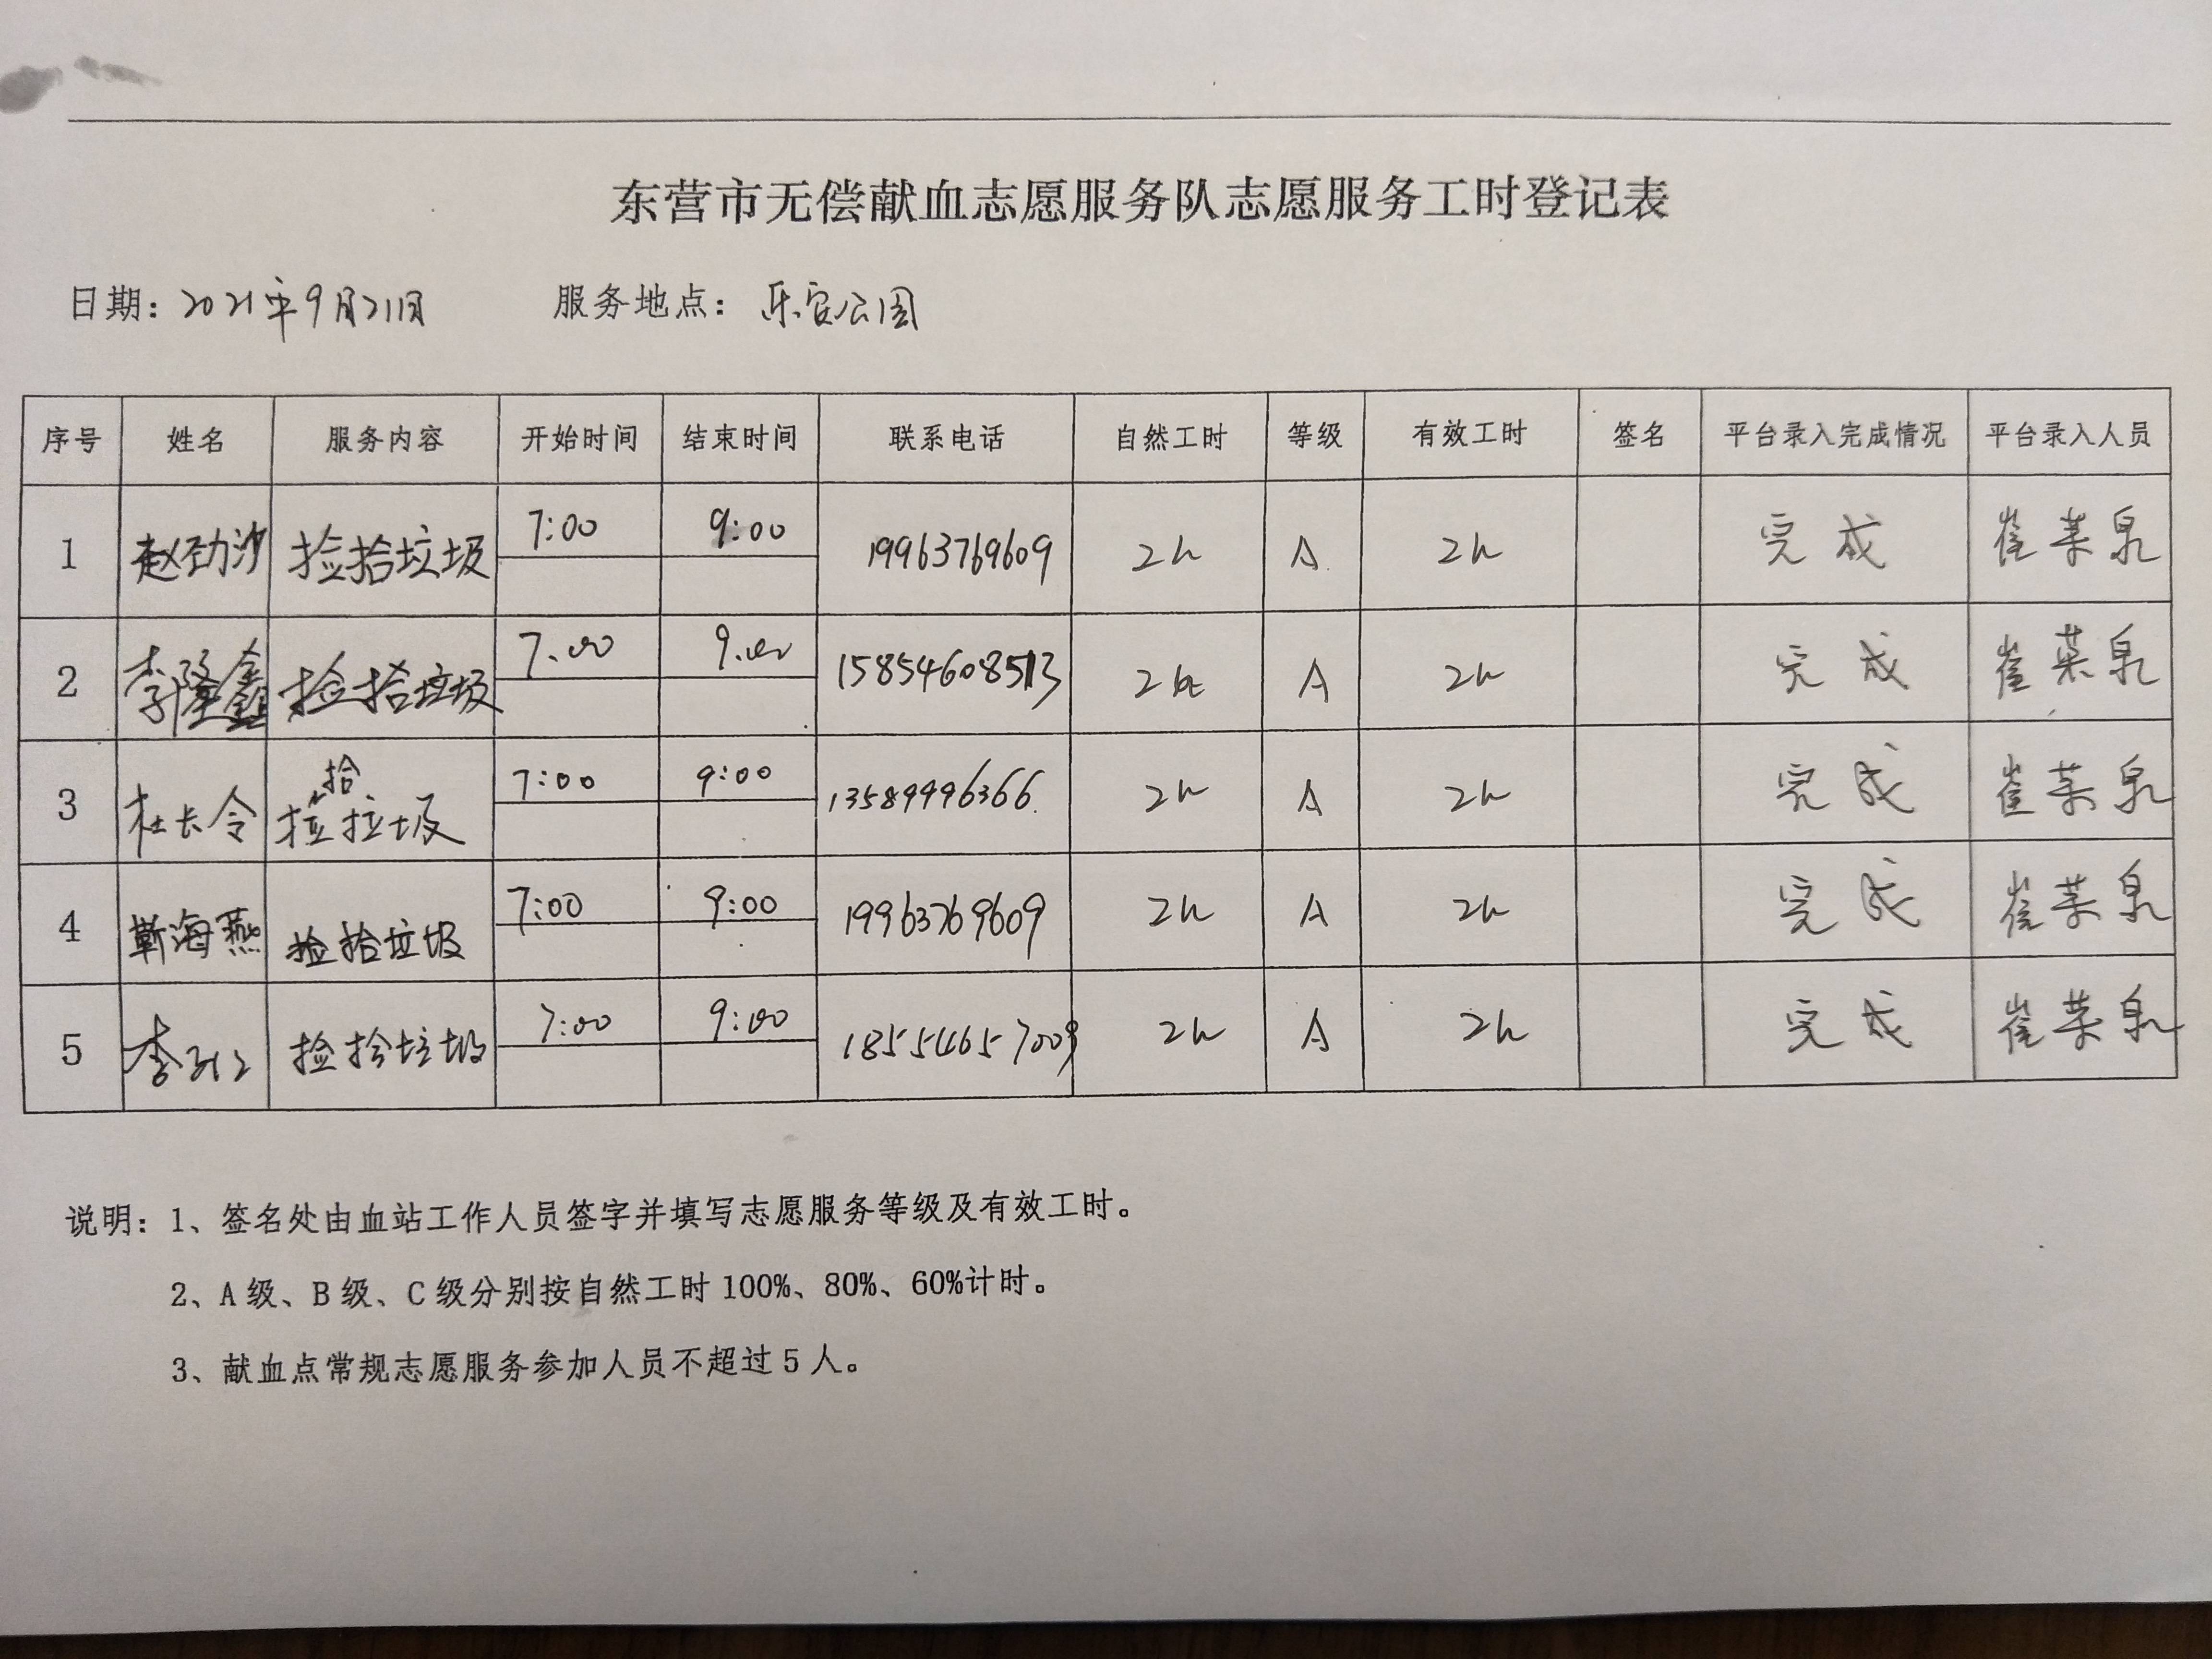 东营市无偿献血志愿服务队志愿服务工时登记表
日期：2021年9月21日 服务地点：乐安公园
序号 姓名 服务内容 开始时间 结束时间 联系电话 自然工时 等级 有效工时 签名 平台录入完成情况 平台录入人员
1 赵劲沙 捡拾垃圾 7:00 9:00 19963769609 2h A 2h 完成 崔荣泉
2 李隆鑫 捡拾垃圾 7:00 9:00 15854608513 2h A 2h 完成 崔荣泉
拾
3 杜长令 捡垃圾 7:00 9:00 13589996366 2h A 2h 完成 崔荣泉
4 靳海燕 捡拾垃圾 7:00 9:00 19963769609 2h A 2h 完成 崔荣泉
5 李 捡拾垃圾 7:00 9:00 18554657009 2h A 2h 完成 崔荣泉
说明：1、签名处由血站工作人员签字并填写志愿服务等级及有效工时。
2、A 级、B 级、C 级分别按自然工时 100%、80%、60%计时。
3、献血点常规志愿服务参加人员不超过 5 人。